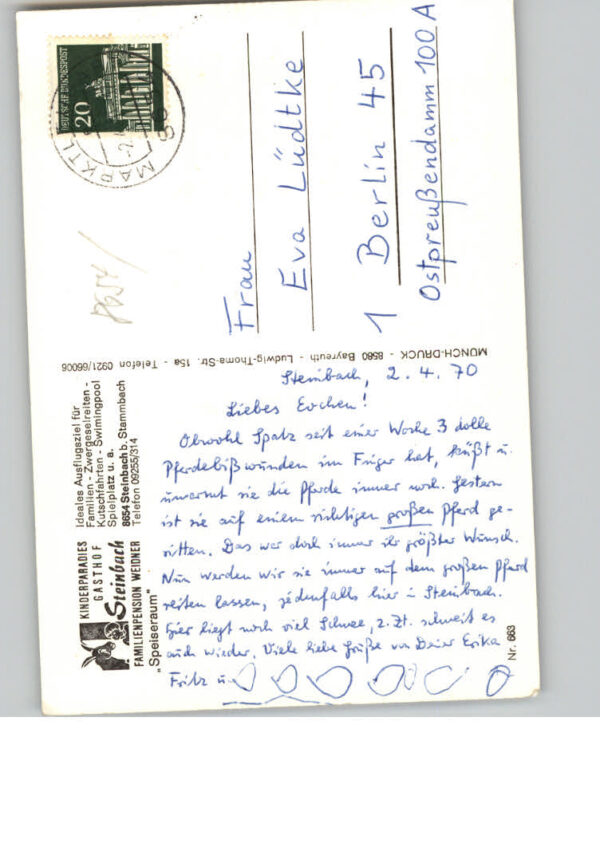 KINDERPARADIES
GASTHOF
Steinbach
FAMILIENPENSION WEIDNER
"Speiseraum"
Ideales Ausflugsziel für
Familien - Zwergeselreiten -
Kutschfahrten - Swimingpool
Spielplatz u. a.
8654 Steinbach b. Stammbach
Telefon 09255/314
Steinbach, 2.4.70
Liebes Evchen!
Obwohl Spatz seit einer Woche 3 dolle
Pferdebißwunden im Finger hat, küßt u.
umarmt sie die Pferde immer noch. Gestern
ist sie auf einem richtigen großen Pferd ge-
ritten. Das war doch immer ihr größter Wunsch.
Nun werden wir sie immer auf dem großen Pferd
reiten lassen, jedenfalls hier in Steinbach.
Hier liegt noch viel Schnee, z. Zt. schneit es
auch wieder. Viele liebe Grüße von Deiner Erika
Fritz u.
Nr. 663
MÜNCH-DRUCK - 8580 Bayreuth - Ludwig-Thoma-Str. 15a - Telefon 0921/66006
DEUTSCHE BUNDESPOST
20
MARKTL
Frau
Eva Lüdtke
1 Berlin 45
Ostpreußendamm 100 A